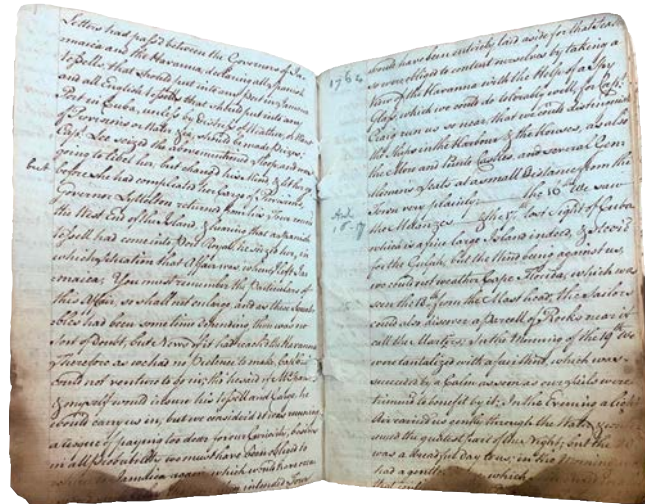 Letters had pass'd between the Governors of Ja-
maica and the Havanna, declaring all Spanish
Vessells that should put into any Port in Jamaica
and all English Vessells that should put into any
Port in Cuba, unless by distress of Weather, & Want
of Provisions or Water &ca. should be made Prizes;
Capt. seized the Sloop and was
going to libel her, but changed his Mind & let her go
but before she had compleated her Cargo of Provisions,
Governor Lyttelton returned from his Tour round
the West End of the Island, & hearing that a Spanish
Vessell had come into Port Royall, he seized her, in
which situation that Affair was when I left Ja-
maica; You must remember the Particulars of
this Affair, so shall not enlarge, and as these Squab-
bles had been sometime depending, there was no
sort of doubt, but News of it had reach'd the Havanna
Therefore as we had no Pretence to make, Capt.
could not venture to go in; tho' he said if Mr.
& myself would insure his Vessell and Cargo, he
would carry us in, but we consider'd it was running
a risque of paying too dear for our Curiosity, besides
in all Probability we must have been obliged to
return to Jamaica again, which would have
intended Tour
should have been entirely laid aside for that Year
1764 so were obliged to content ourselves by taking a
View of the Havanna with the Help of a Spy
Glass, which we could do tolerably well, for Capt.
run us so near, that we could distinguish
the Ships in the Harbour & the Houses, as also
the Moro and Punto Castles, and several Gen-
tlemens Seats at a small Distance from the
Town very plainly: the 16th. we saw
the & the 17th. lost Sight of Cuba
which is a fine large Island indeed, & steer'd
for the Gulph, but the Wind being against us,
we could not weather Cape Florida, which was
seen the 18th. from the Mast head, the Sailors
could also discover a parcell of Rocks near it
call the Martyrs: In the Morning of the 19th. we
were tantalized with a fair Wind, which was
succeeded by a Calm as soon as our Sails were
trimmed to benefit by it; In the Evening a light
Air carried us gently through the Water &
the greatest part of the Night, but the
was a dreadful day to us; in the Morning we
had a gentle which